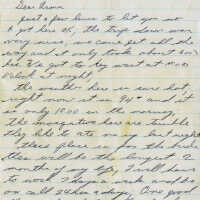 Dear Mom
Just a few lines to let you no
I got here ok, the trip down was
very nice, we came jet all the
way and it only took about 2 1/2
hrs. We got to
o'clock at night,
The weather here is sure hot
right now at is 90° and it
is only 10:00 in the morning.
The mosquitos here are terrible
they like to ate me up last night
These place is for the birds
this will be the longest 2
months of my life, I will have
to work 7 days a week and be
on call 24 hrs a day, One good